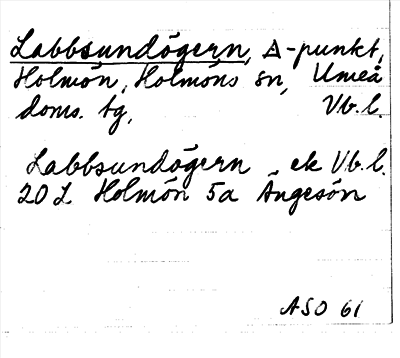 Labbsundögern, △-punkt,
Holmön, Holmöns sn, Umeå
doms. tg, Vb. l.
Labbsundögern ek Vb. l.
20 L Holmön 5a Ängesön
ASO 61